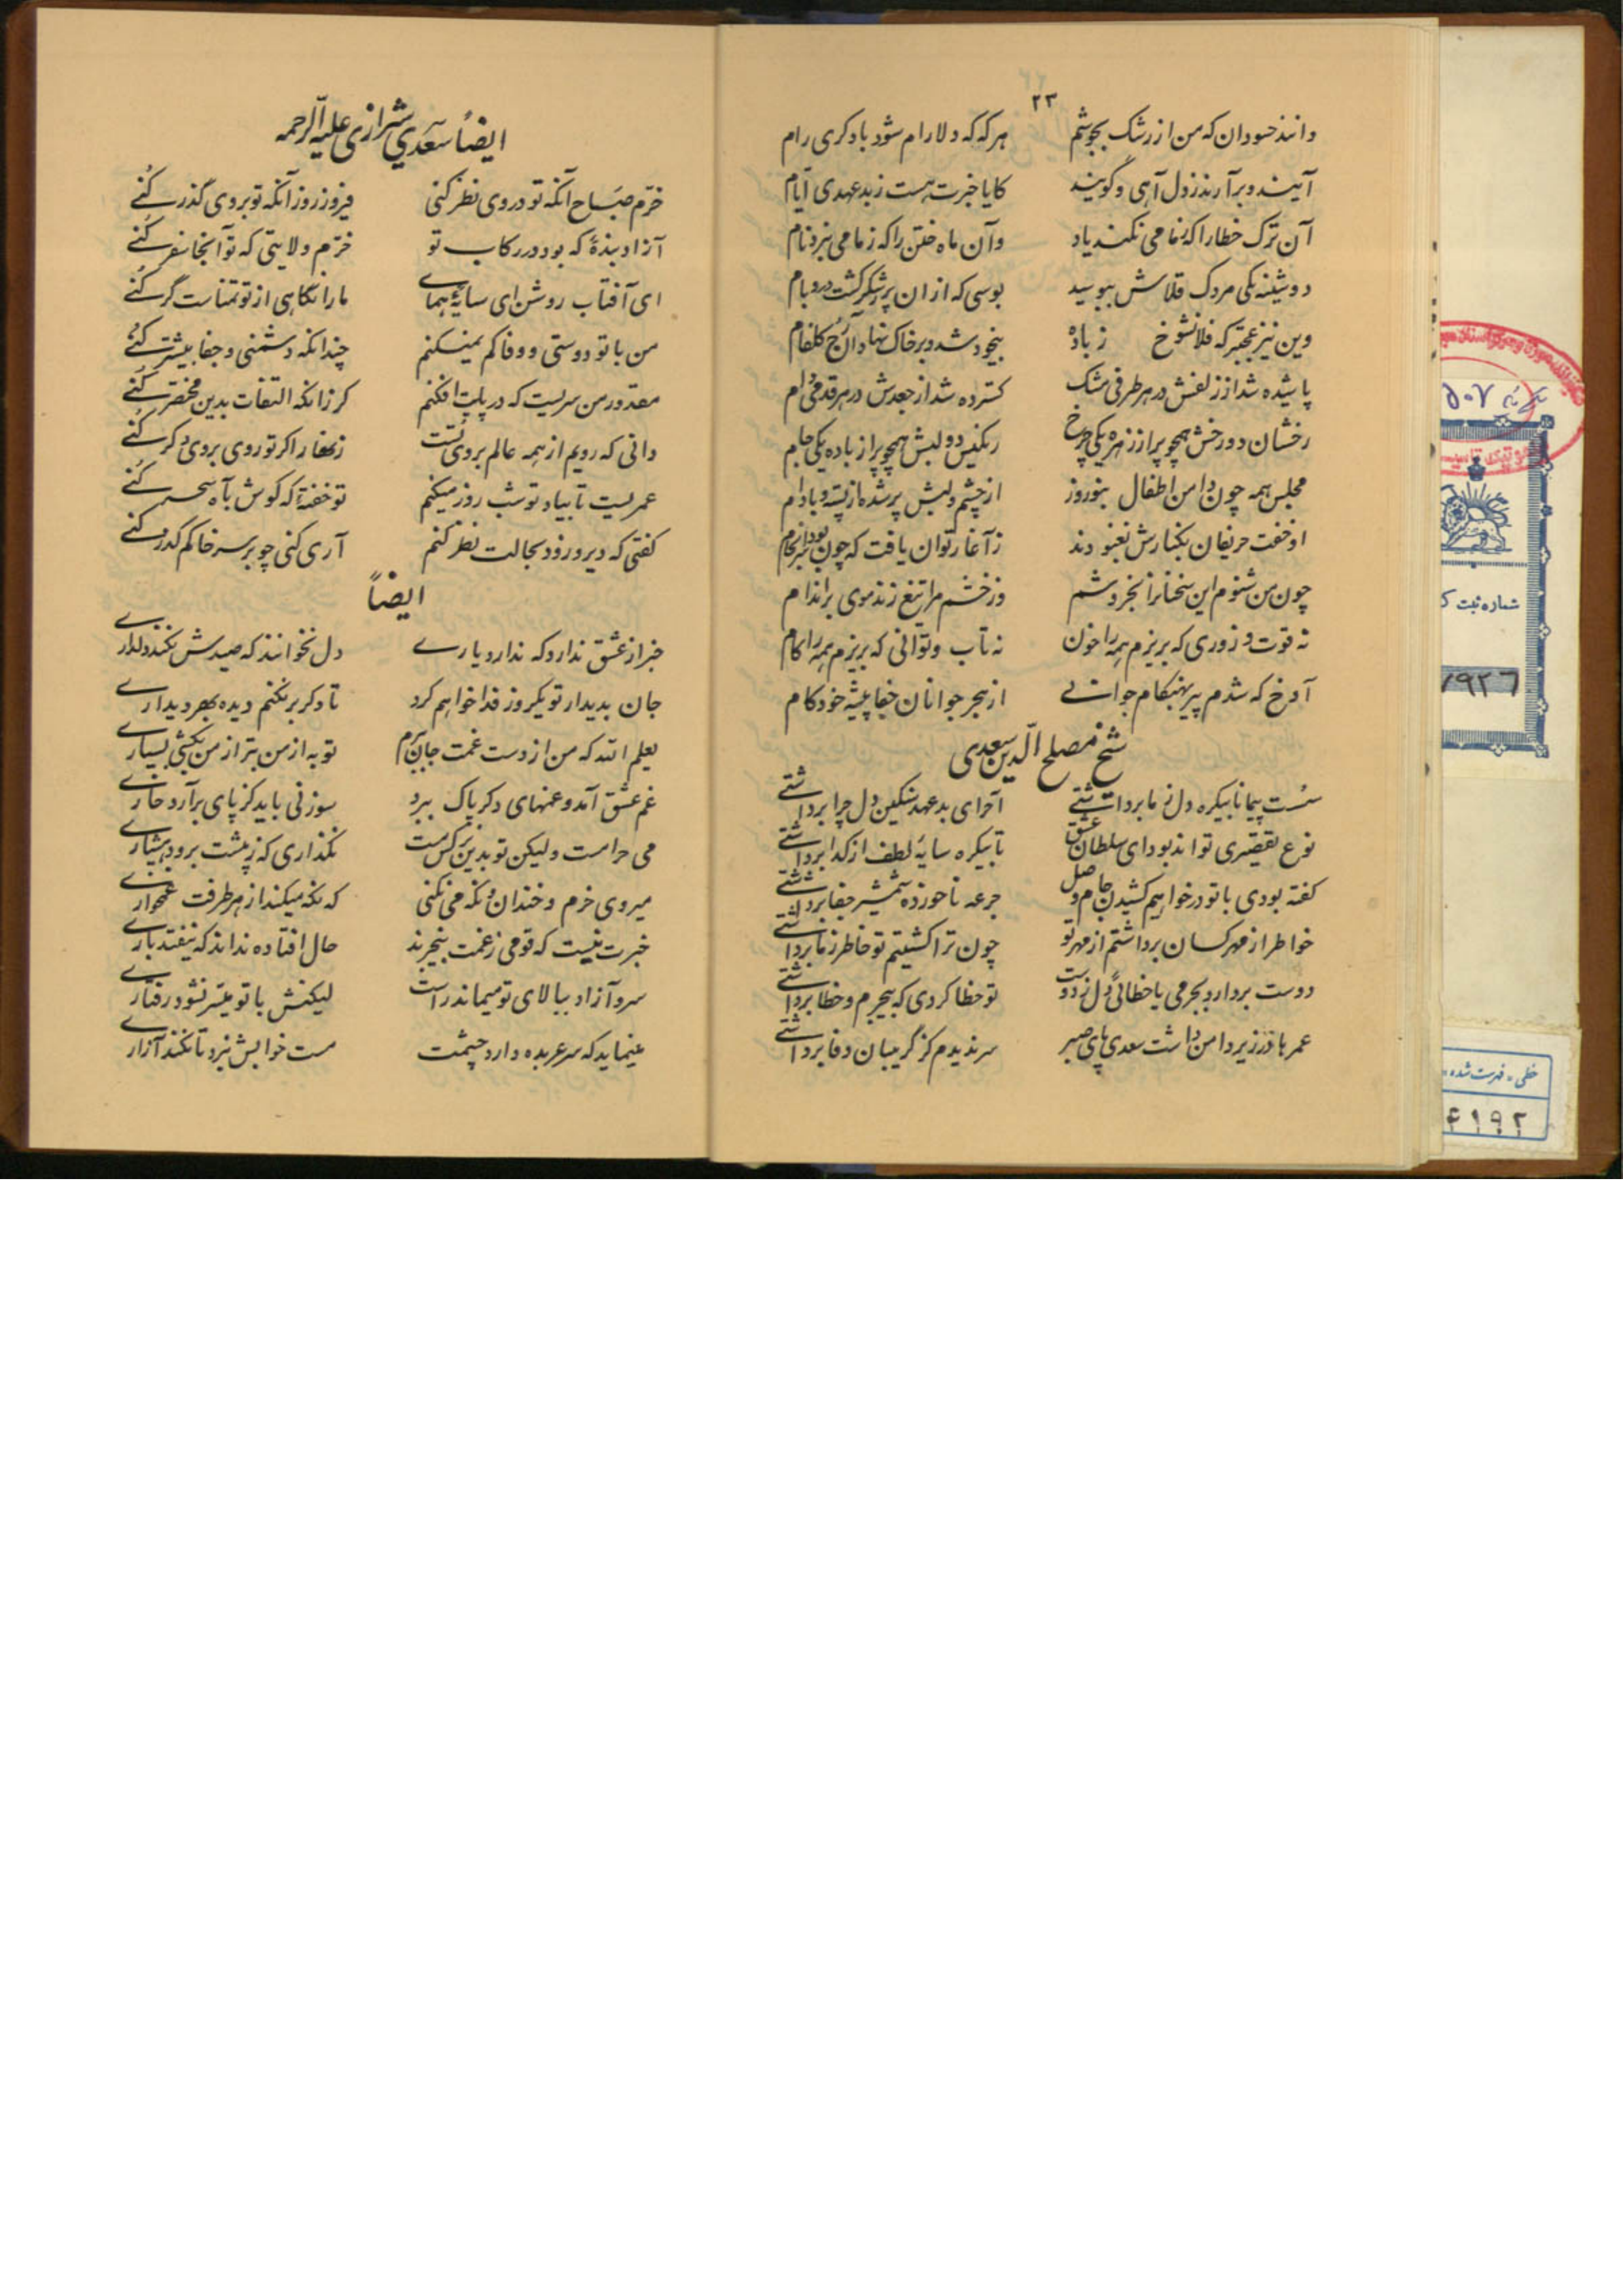 ۲۳
دانند حسودان که من از رشک بجوشم هر که که دلارام شود با دکری رام
آیند و برآرند ز دل آهی و گویند کایا خبرت هست ز بدعهدی ایام
آن ترک خطا را که ز ما می نکند یاد وآن ماه ختن را که ز ما می نبرد نام
دوشینه یکی مردک قلاش ببوسید بوسی که از ان پر شکر گشت در و بام
وین نیز عجبتر که فلان شوخ ز باده بیخود شد و بر خاک نهاد آن رخ گلفام
پاشیده شد از زلفش در هر طرفی مشک کسترده شد از جعدش در هر قدمی دام
رخشان دو رخش همچو پر از زهره یکی چرخ رنگین دو لبش همچو پر از باده یکی جام
مجلس همه چون دامن اطفال بنوروز از چشم و لبش پر شده از پسته و بادام
او خفت حریفان بکنارش نغنودند ز آغاز توان یافت که چون بود سرانجام
چون من شنوم این سخنانرا نخروشم وز خشم مرا تیغ زند موی بر اندام
نه قوت و زوری که بریزم همه را خون نه تاب و توانی که بریزم همه را کام
آوخ که شدم پیر بهنکام جوانی از هجر جوانان جفا پیشه خودکام
شیخ مصلح الدین سعدی
سست پیمانا بیکره دل ز ما برداشتی آخر ای بدعهد سنگین دل چرا برداشتی
نوع تقصیری تواند بود ای سلطان عشق تا بیکره سایه لطف از کدا برداشتی
کفته بودی با تو در خواهیم کشیدن جام وصل جرعه ناخورده شمشیر جفا برداشتی
خاطر از مهر کسان برداشتم از مهر تو چون ترا کشتیم تو خاطر ز ما برداشتی
دوست بردارد بجرمی یا خطائی دل ز دوست تو خطا کردی که بیجرم و خطا برداشتی
عمرها در زیر دامن داشت سعدی پای صبر سر ندیدم کز گریبان وفا برداشتی
ایضاً سعدی شیرازی علیه الرحمه
خرم صباح آنکه تو در وی نظر کنی فیروز روز آنکه تو بروی گذر کنی
آزاد بندهٔ که بود در رکاب تو خرم ولایتی که تو آنجا سفر کنی
ای آفتاب روشن ای سایهٔ همای ما را نگاهی از تو تمناست گر کنی
من با تو دوستی و وفا کم نمیکنم چندانکه دشمنی و جفا بیشتر کنی
مقدور من سریست که در پایت افکنم کر زانکه التفات بدین مختصر کنی
دانی که رویم از همه عالم بروی تست زنهار اکر تو روی بروی دکر کنی
عمریست تا بیاد تو شب روز میکنم تو خفتهٔ که کوش بآه سحر کنی
کفتی که دیر و زود بحالت نظر کنم آری کنی چو بر سر خاکم کذر کنی
ایضاً
خبر از عشق ندارد که ندارد یاری دل نخوانند که صیدش نکند دلداری
جان بدیدار تو یکروز فدا خواهم کرد تا دکر بر نکنم دیده بهر دیداری
یعلم الله که من از دست غمت جان نبرم تو به از من بتر از من بکشی بسیاری
غم عشق آمد و غمهای دکر پاک ببرد سوزنی باید کز پای برآرد خاری
می حرامست ولیکن تو بدین نرکس مست نگذاری که ز پیشت برود هشیاری
میروی خرم و خندان و نکه می نکنی که نکه میکند از هر طرفت غمخواری
خبرت نیست که قومی ز غمت بیخبرند حال افتاده نداند که نیفتد باری
سرو آزاد ببالای تو میماند راست لیکنش با تو میسر نشود رفتاری
مینماید که سر عربده دارد چشمت مست خوابش نبرد تا نکند آزاری
۵۰۷
شماره ثبت ک
۷۹۲۶
خطی - فهرست شده
۴۱۹۲